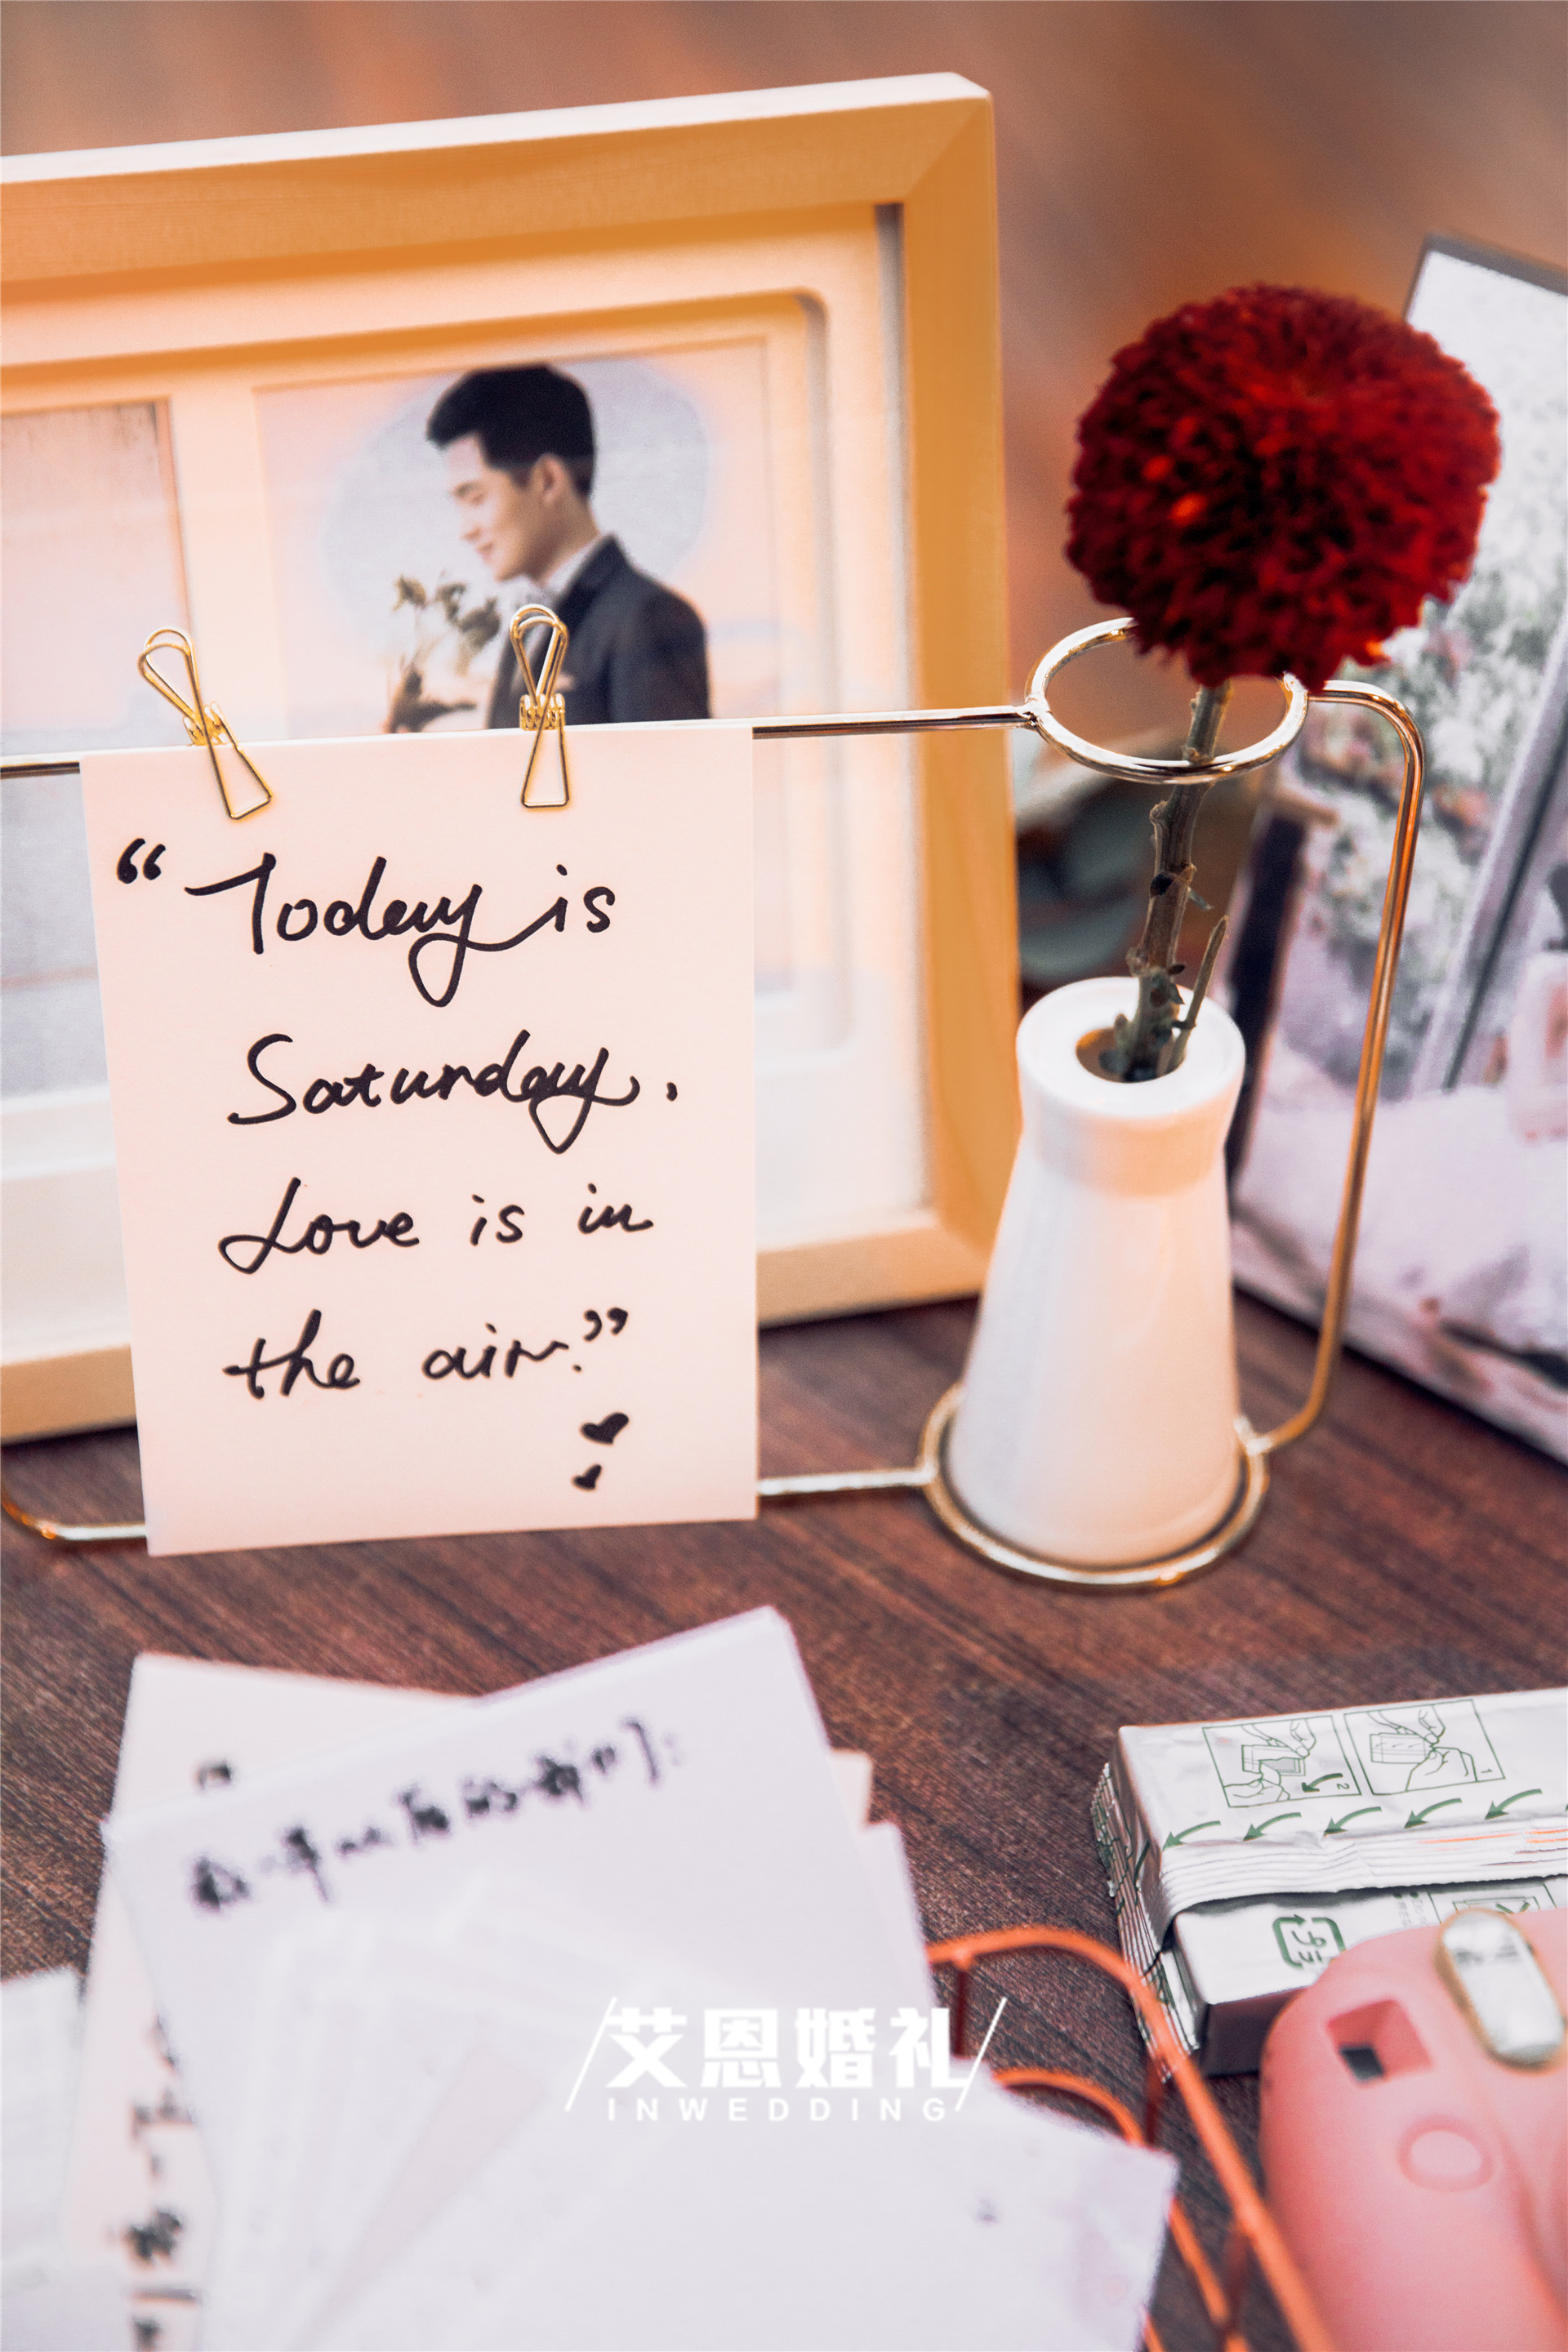 “Today is
Saturday,
Love is in
the air.”
给一年以后的我们：
艾恩婚礼
INWEDDING